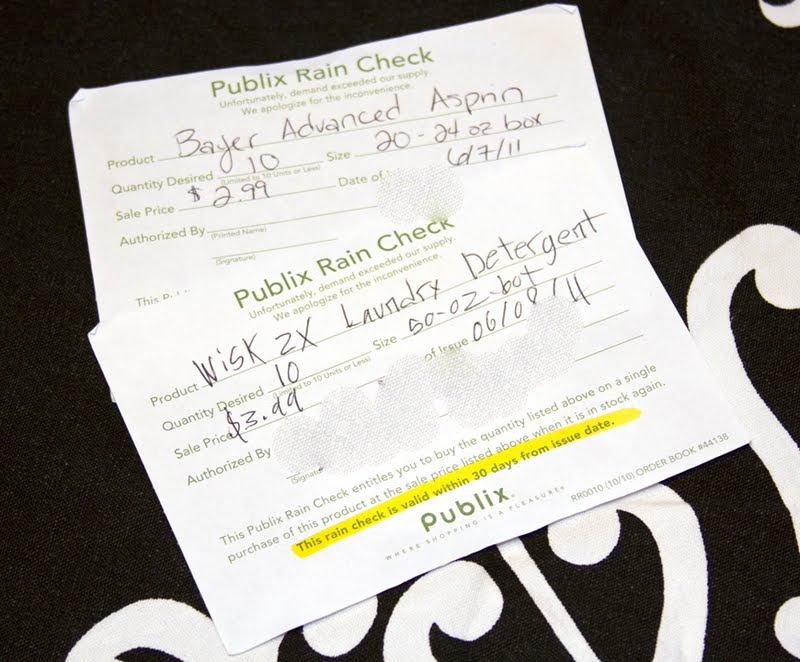 Publix Rain Check
Unfortunately, demand exceeded our supply.
We apologize for the inconvenience.
Product Bayer Advanced Asprin
Quantity Desired 10 Size 20-24 oz box
(Limited to 10 Units or Less)
Sale Price $2.99 Date of 6/7/11
Authorized By
(Printed Name)
(Signature)
This
Publix Rain Check
Unfortunately, demand exceeded our supply.
We apologize for the inconvenience.
Product Wisk 2X Laundry Detergent
Quantity Desired 10 Size 50-oz-bot
(Limited to 10 Units or Less)
Sale Price $3.99 of Issue 06/09/11
Authorized By
This Publix Rain Check entitles you to buy the quantity listed above on a single
purchase of this product at the sale price listed above when it is in stock again.
This rain check is valid within 30 days from issue date.
Publix
WHERE SHOPPING IS A PLEASURE®
RR0010 (10/10) ORDER BOOK #44138